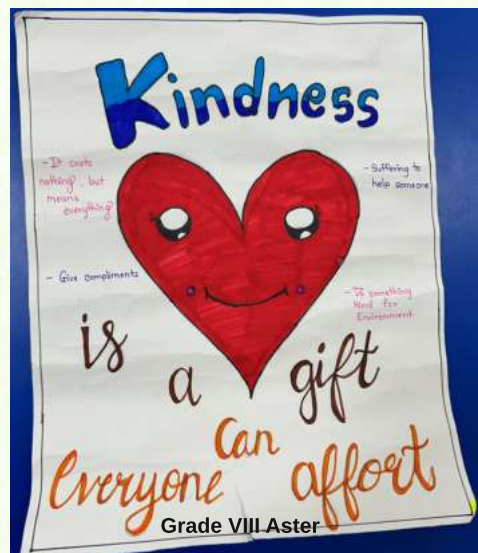 Kindness
- It costs
nothing, but
means
everything
- Suffering to
help someone
- Give compliments
- Is something
kind for
Environment
is a gift
Everyone Can affort
Grade VIII Aster